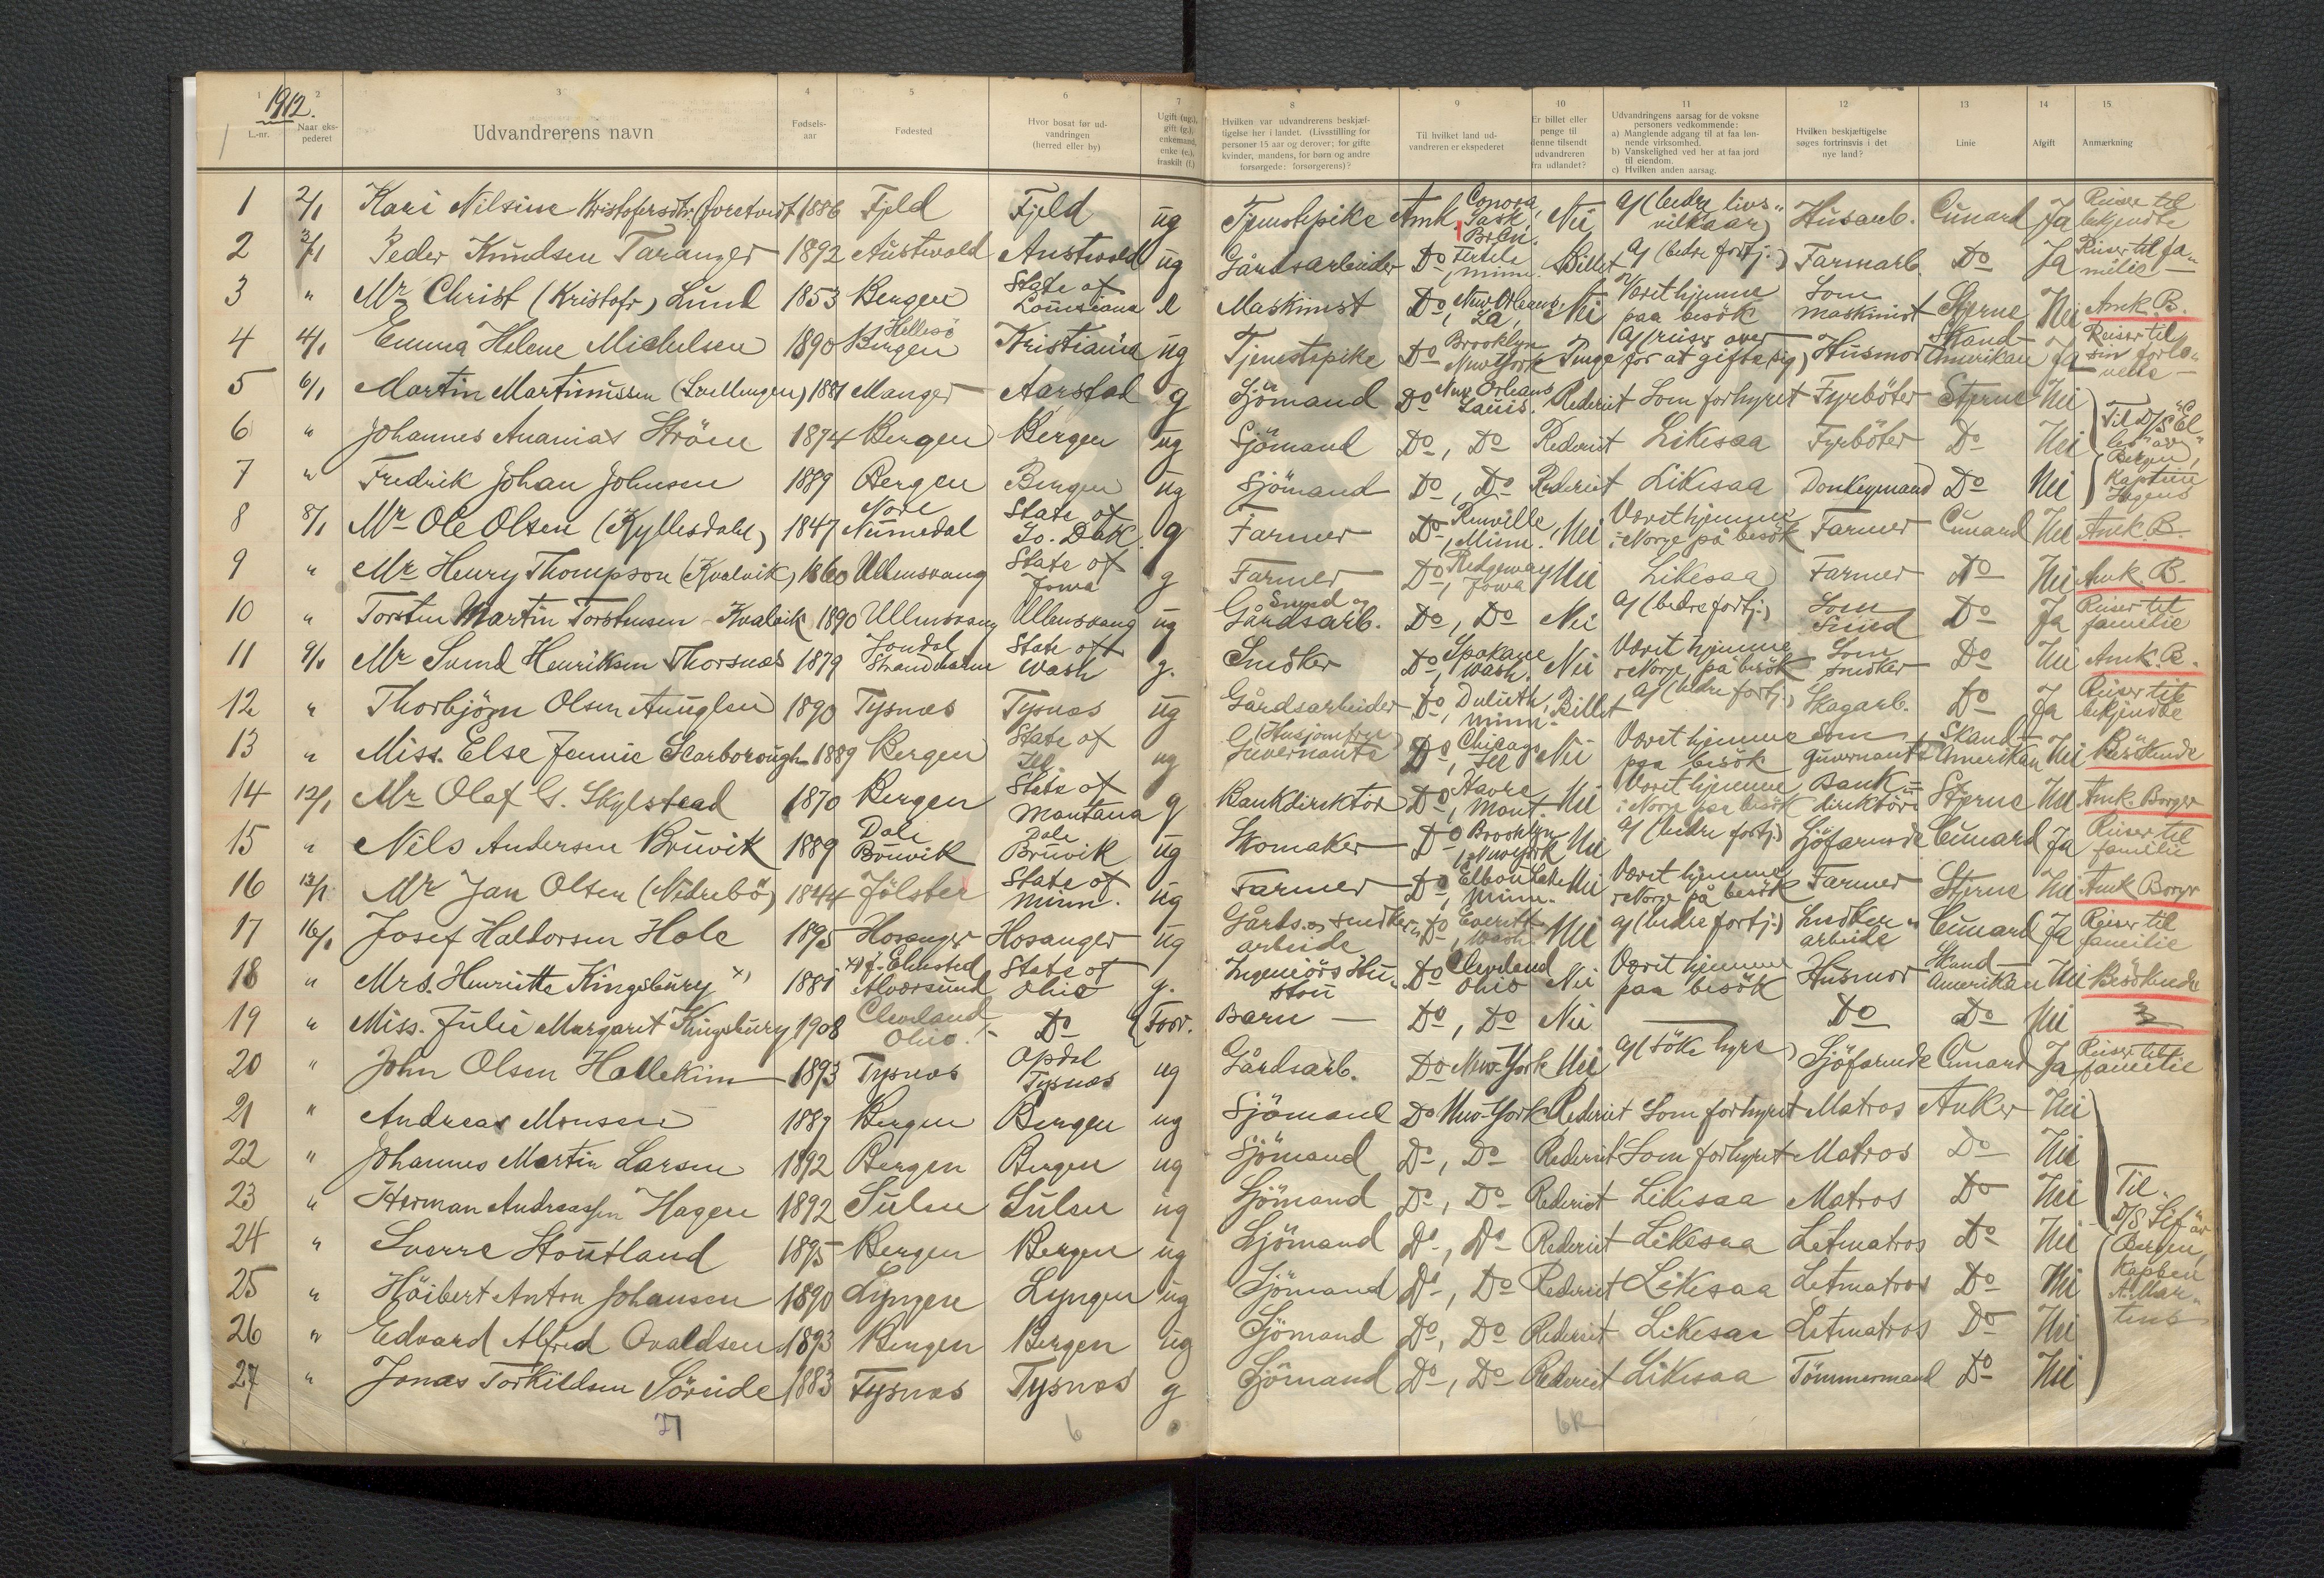 1912.
1 2 3 4 5 6 7 8 9 10 11 12 13 14 15
L.-nr. | Naar ekspederet | Udvandrerens navn | Fødselsaar | Fødested | Hvor bosat før udvandringen (herred eller by) | Ugift (ug.), gift (g.), enkemand, enke (e.), fraskilt (f.) | Hvilken var udvandrerens beskjæftigelse her i landet. (Livsstilling for personer 15 aar og derover; for gifte kvinder, mandens, for børn og andre forsørgede: forsørgerens)? | Til hvilket land udvandreren er ekspederet | Er billet eller penge til denne tilsendt udvandreren fra udlandet? | Udvandringens aarsag for de voksne personers vedkommende: a) Manglende adgang til at faa lønnende virksomhed. b) Vanskelighed ved her at faa jord til eiendom. c) Hvilken anden aarsag. | Hvilken beskjæftigelse søges fortrinsvis i det nye land? | Linie | Afgift | Anmærkning
1 2/1 Kari Nilsine Kristofersdtr. 1886 Fjeld Fjeld ug Tjenstepike Amk. Sask. Nei a/(bedre livsvilkaar) Husarb. Cunard Ja Reiser til bekjendte
2 3/1 Peder Knudsen Taranger 1892 Austevold Austevold ug Gårdsarbeider Do Fertile, Minn. Billet a/ (bedre fortj.) Farmarb. Do Ja Reiser til familie
3 " Mr Christ (Kristofr) Lund 1853 Bergen State of Louisiana e Maskinist Do, New Orleans, La, Nei Værit hjemme paa besök Som maskinist Stjerne Nei Amk. B.
4 4/1 Emma Helene Michelsen 1890 Hellesö Bergen Kristiania ug Tjenestepike Do Brooklyn New York Penge a/(reiser over for at gifte sig) Husmor Skand Amerikan Ja Reiser til sin forlovede
5 6/1 Martin Martinussen 1881 Manger Aarstad g Sjömand Do New Orleans Louis. Rederiet Som forhyret Fyrböter Stjerne Nei
6 " Johannes Ananias Ström 1874 Bergen Bergen ug Sjömand Do, Do Rederiet Likesaa Fyrböter Do Nei Til D/S
7 " Fredrik Johan Johnsen 1889 Bergen Bergen ug Sjömand Do, Do Rederiet Likesaa Donkeymand Do Nei Bergen, Kaptein
8 8/1 Mr Ole Olsen (Kyllesdalen) 1847 Nore Numedal State of So. Dak. g Farmer Do Renville, Minn. Nei Værit hjemme i Norge på besök Farmer Cunard Nei Amk. B.
9 " Mr Henry Thompson (Kvalvik) 1860 Ullensvang State of Iowa g Farmer Do, Ridgeway Iowa Nei Likesaa Farmer Do Nei Amk. B.
10 " Torsten Martin Torstensen Kvalvik 1890 Ullensvang Ullensvang ug Smed og Gårdsarb. Do, Do Nei a/(bedre fortj.) Som Smed Do Ja Reiser til familie
11 9/1 Mr Svend Henriksen Thorsnæs 1879 Jondal Strandebarm State of Wash g. Snedker Do, Spokane Wash. Nei Værit hjemme i Norge på besök Som snedker Do Nei Amk. B.
12 " Thorbjörn Olsen Aunglen 1890 Tysnæs Tysnæs ug Gårdsarbeider Do Duluth, Minn. Billet a/ (bedre fortj.) Skogarb. Do Ja Reiser til bekjendte
13 " Miss. Else Jennie Scarborough 1889 Bergen State of Ill. ug (Husjomfru) Guvernante Do, Chicago Ill Nei Værit hjemme paa besök Som guvernante Skand Amerikan Nei Besökende
14 12/1 Mr Olaf G. Skylstead 1870 Bergen State of Montana g Bankdirektör Do, Havre, Mont. Nei Værit hjemme i Norge paa besök Bankdirektör Stjerne Nei Amk. Borger
15 " Nils Andersen Bruvik 1889 Dale Bruvik Dale Bruvik ug Skomaker Do Brooklyn, New York Nei a/ (bedre fortj.) Sjöfarende Cunard Ja Reiser til familie
16 13/1 Mr Jan Olsen (Nedrebö) 1844 Jölster State of Minn. ug Farmer Do, Elbow Lake Minn. Nei Værit hjemme i Norge på besök Farmer Stjerne Nei Amk Borger
17 16/1 Josef Haldorsen Hole 1895 Hosanger Hosanger ug Gårds og snedkerarbeide Do Everett, Wash. Nei a/(bedre fortj.) Snedkerarbeide Cunard Ja Reiser til familie
18 " Mrs. Henriette Kingsbury x) 1881 x) f. Elmsted Alversund State of Ohio g. Ingeniörs Hustru Do Cleveland Ohio Nei Værit hjemme paa besök Husmor Skand Amerikan Nei Besökende
19 " Miss. Julie Margaret Kingsbury 1908 Cleveland Ohio. Do Barn Do, Do Nei — Do Do Nei
20 " John Olsen Hallekim 1893 Tysnæs Opdal Tysnæs ug Gårdsarb. Do New-York Nei a/(söke hyre) Sjöfarende Cunard Ja Reiser til familie
21 " Andreas Monsen 1889 Bergen Bergen ug Sjömand Do New-York Rederiet Som forhyret Matros Anker Nei
22 " Johannes Martin Larsen 1892 Bergen Bergen ug Sjömand Do, Do Rederiet Som forhyret Matros Do Nei
23 " Herman Andreassen Hagen 1892 Sulen Sulen ug Sjömand Do, Do Rederiet Likesaa Matros Do Nei Til
24 " Sverre Stoutland 1895 Bergen Bergen ug Sjömand Do, Do Rederiet Likesaa Letmatros Do Nei D/S Sif av Bergen,
25 " Höibert Anton Johansen 1890 Lyngen Lyngen ug Sjömand Do, Do Rederiet Likesaa Letmatros Do Nei Kaptein
26 " Edvard Alfred Ovaldsen 1893 Bergen Bergen ug Sjömand Do, Do Rederiet Likesaa Letmatros Do Nei A. Martens
27 " Jonas Torkildsen Söreide 1883 Tysnæs Tysnæs g Sjömand Do, Do Rederiet Likesaa Tömmermand Do Nei
6